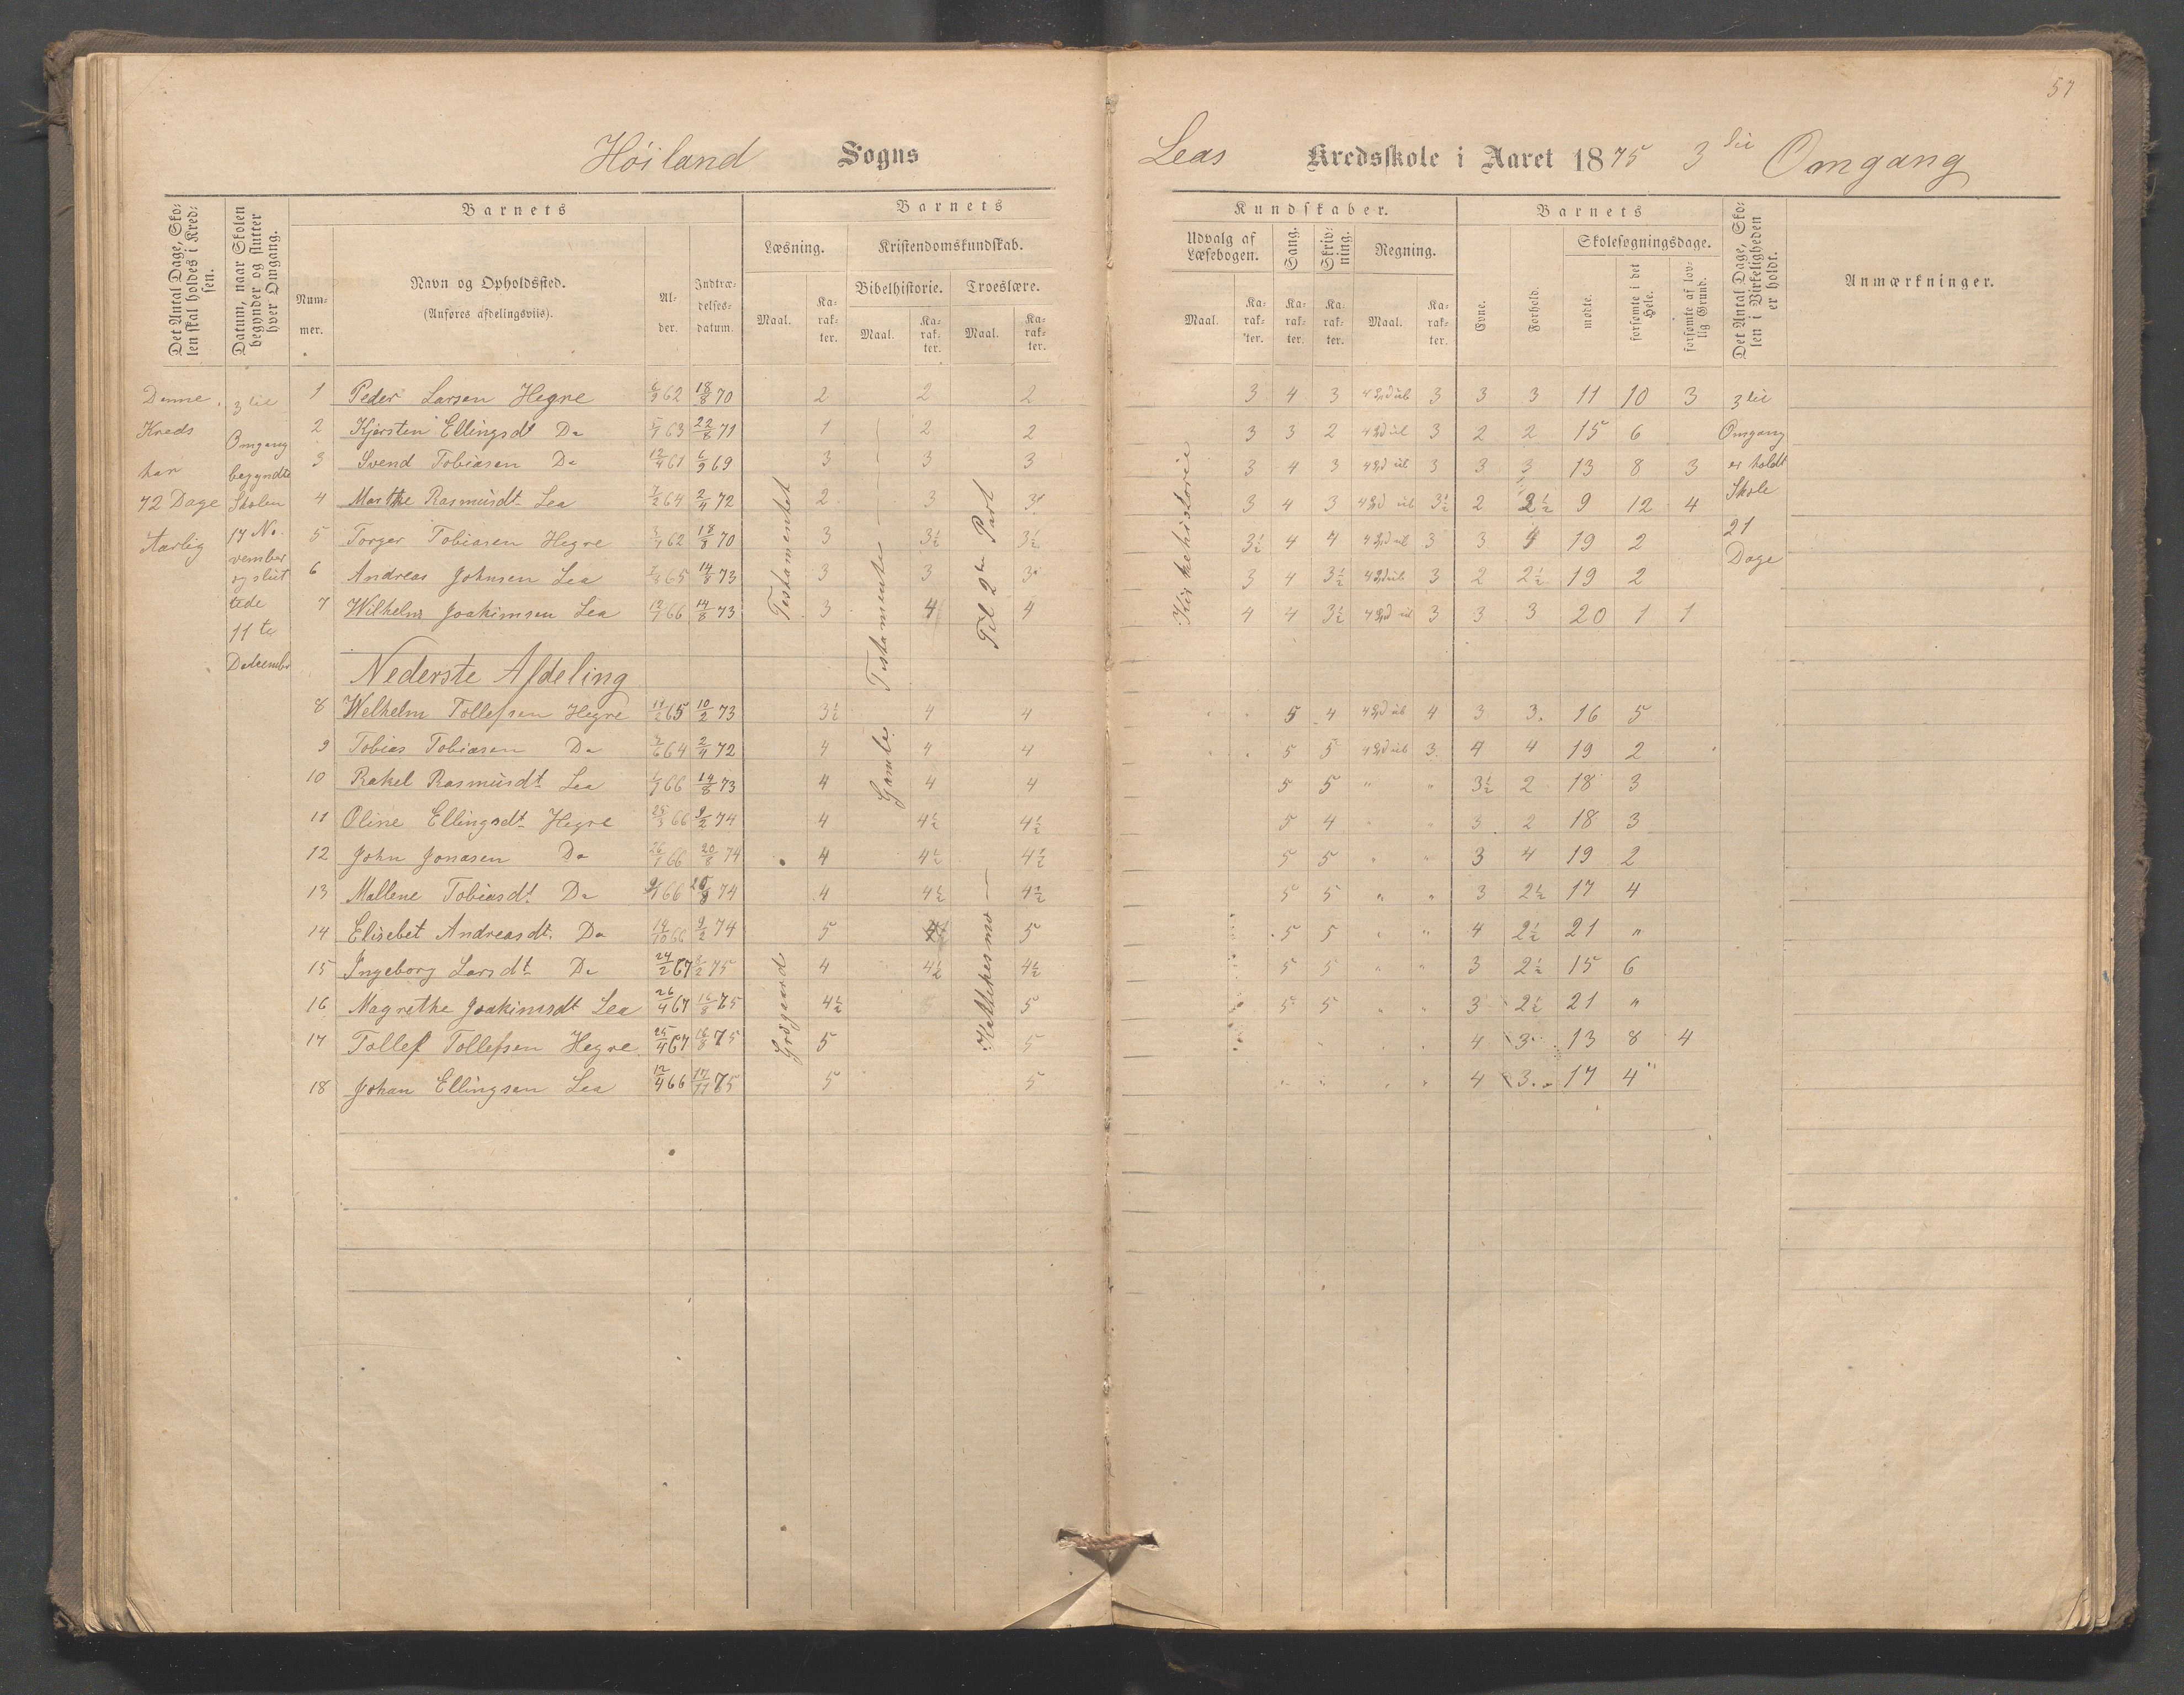 57
Höiland Sogns
Leas Kredsskole i Aaret 1875 3die Omgang
Det Antal Dage, Skolen skal holdes i Kredsen.
Datum, naar Skolen begynder og slutter hver Omgang.
Barnets
Nummer.
Navn og Opholdssted.
(Anføres afdelingsviis).
Alder.
Indtrædelsesdatum.
Barnets
Læsning.
Maal.
Karakter.
Kristendomskundskab.
Bibelhistorie.
Maal.
Karakter.
Troeslære.
Maal.
Karakter.
Kundskaber.
Udvalg af Læsebogen.
Maal.
Karakter.
Sang.
Karakter.
Skrivning.
Karakter.
Regning.
Maal.
Karakter.
Barnets
Evne.
Forhold.
Skolesøgningsdage.
mødte.
forsømte i det Hele.
forsømte af lovlig Grund.
Det Antal Dage, Skolen i Virkeligheden er holdt.
Anmærkninger.
Denne
Kreds
har
72 Dage
Aarlig
3die
Omgang
begyndte
Skolen
17 No-
vember
og slut
tede
11te
Decembr
Testamentet
Gamle Testamente
Til 2den Part
Kirkehistorie
1 Peder Larsen Hegre 62 18/8 70 2 2 2 3 4 3 3 3 3 11 10 3
2 Kjersten Ellingsdt Do 63 22/8 71 1 2 2 3 3 2 3 2 2 15 6
3 Svend Tobiasen Do 12/4 61 6/9 69 3 3 3 3 4 3 3 3 3 13 8 3
4 Marthe Rasmusdt Lea 64 2/4 72 2 3 3 4 3 3½ 2 2½ 9 12 4
5 Torger Tobiasen Hegre 62 18/8 70 3 3½ 3½ 3½ 4 4 3 3 4 19 2
6 Andreas Johnsen Lea 65 14/8 73 3 3 3 3 4 3½ 3 2 2½ 19 2
7 Wilhelm Joakimsen Lea 66 14/8 73 3 4 4 4 4 3½ 3 3 3 20 1 1
3die
Omgang
er holdt
Skole
21
Dage
Nederste Afdeling
Grögaard
Kattekesmo
8 Welhelm Tollefsen Hegre 65 10/2 73 3½ 4 4 5 4 4 3 3 16 5
9 Tobias Tobiasen Do 64 2/4 72 4 4 4 5 5 3 4 4 19 2
10 Rakel Rasmusdt Lea 66 14/8 73 4 4 4 5 5 " " 3½ 2 18 3
11 Oline Ellingsdt Hegre 25/3 66 9/2 74 4 4½ 4½ 5 4 " " 3 2 18 3
12 John Jonasen Do 66 20/8 74 4 4½ 4½ 5 5 " " 3 4 19 2
13 Mallene Tobiasdt Do 66 20/8 74 4 4½ 4½ 5 5 " " 3 2½ 17 4
14 Elisebet Andreasdt. Do 14/10 66 9/2 74 5 5 5 5 " " 4 2½ 21 "
15 Ingeborg Larsdt Do 24/2 67 75 4 4½ 4½ 5 5 " " 3 2½ 15 6
16 Magrethe Joakimsdt Lea 26/4 67 16/8 75 4½ 5 5 5 5 " " 3 2½ 21 "
17 Tollef Tollefsen Hegre 25/4 67 16/8 75 5 5 4 3 13 8 4
18 Johan Ellingsen Lea 12/4 66 17/11 75 5 5 " " " " 4 3 17 4 "